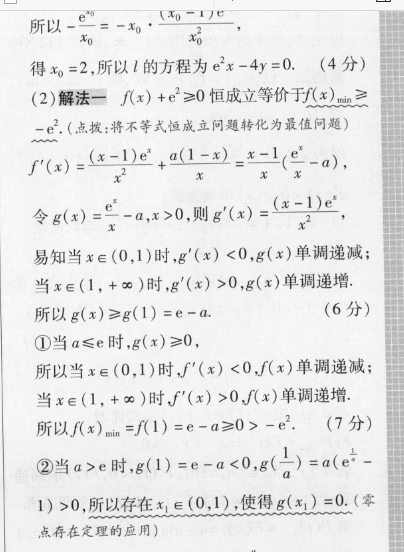 所以 -e^{x_0}/x_0 = -x_0 · (x_0 - 1)e^{x_0}/x_0^2,
得 x_0 = 2,所以 l 的方程为 e^2x - 4y = 0. (4 分)
(2) 解法一 f(x) + e^2 ≥ 0 恒成立等价于 f(x)_{min} ≥
-e^2. (点拨:将不等式恒成立问题转化为最值问题)
f'(x) = (x-1)e^x/x^2 + a(1-x)/x = (x-1)/x (e^x/x - a),
令 g(x) = e^x/x - a, x > 0, 则 g'(x) = (x-1)e^x/x^2,
易知当 x ∈ (0,1) 时, g'(x) < 0, g(x) 单调递减;
当 x ∈ (1, +∞) 时, g'(x) > 0, g(x) 单调递增.
所以 g(x) ≥ g(1) = e - a. (6 分)
①当 a ≤ e 时, g(x) ≥ 0,
所以当 x ∈ (0,1) 时, f'(x) < 0, f(x) 单调递减;
当 x ∈ (1, +∞) 时, f'(x) > 0, f(x) 单调递增.
所以 f(x)_{min} = f(1) = e - a ≥ 0 > -e^2. (7 分)
②当 a > e 时, g(1) = e - a < 0, g(1/a) = a(e^{1/a} -
1) > 0, 所以存在 x_1 ∈ (0,1), 使得 g(x_1) = 0. (零
点存在定理的应用)